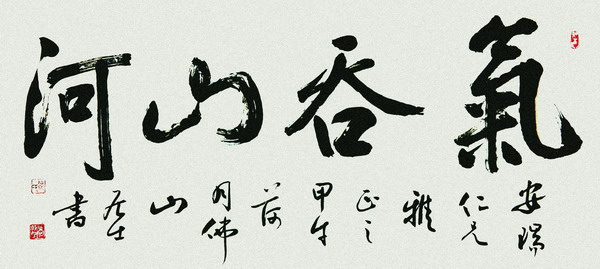 氣吞山河
安瑞仁兄雅正之甲午荷月佛山居士書